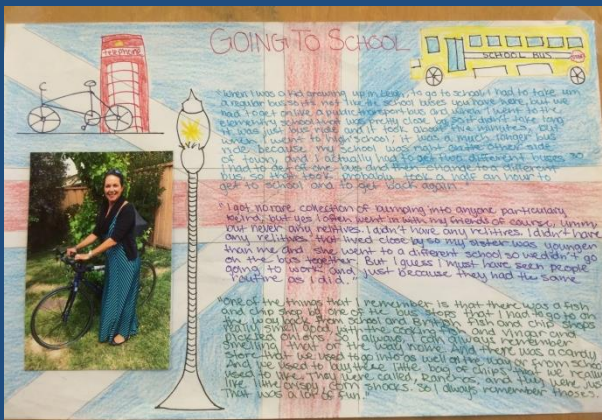 GOING TO SCHOOL
TELEPHONE
SCHOOL BUS
"When I was a kid growing up in, to go to school, I had to take um
a regular bus, so it's not like the school buses you have here, but we
had to get on like a public transport bus and when I went to the
elementary school was really close, so it didn't take long
it was just bus ride and it took about five minutes, but
when I went to high school, it was a much longer
ride because my school was right on the other side
of town, and I actually had to get two different buses. So
I had to get of one bus and then change to a different
bus, so that took probably took a half an hour to
get to school and to get back again
"I got no rare collection of bumping into anyone particulary
behind, but yes I often went in with my friends of course, umm,
but never any relitives. I didn't have any relitives. I didn't have
any relitives that lived close by so my sister was younger
than me and she went to a different school so we didn't go
on the bus together. But I guess I must have seen people
going to work and, just because they had the same
routine as I did.
"One of the things that I remember is that there was a fish
and chip shop by one of the bus stops that I had to go to on
the way back from school and British fish and chip shops
really smell good, with the cooking and vinegar and
pickled onions, so I always, I can always remember
smelling that on the way home. and there was a candy
store that we used to go into as well on the way from school
and we used to buy these little bag of chips that we really
used to like. They were called, and they were just
like little crispy, corn snacks. So I always remember those.
That was a lot of fun."